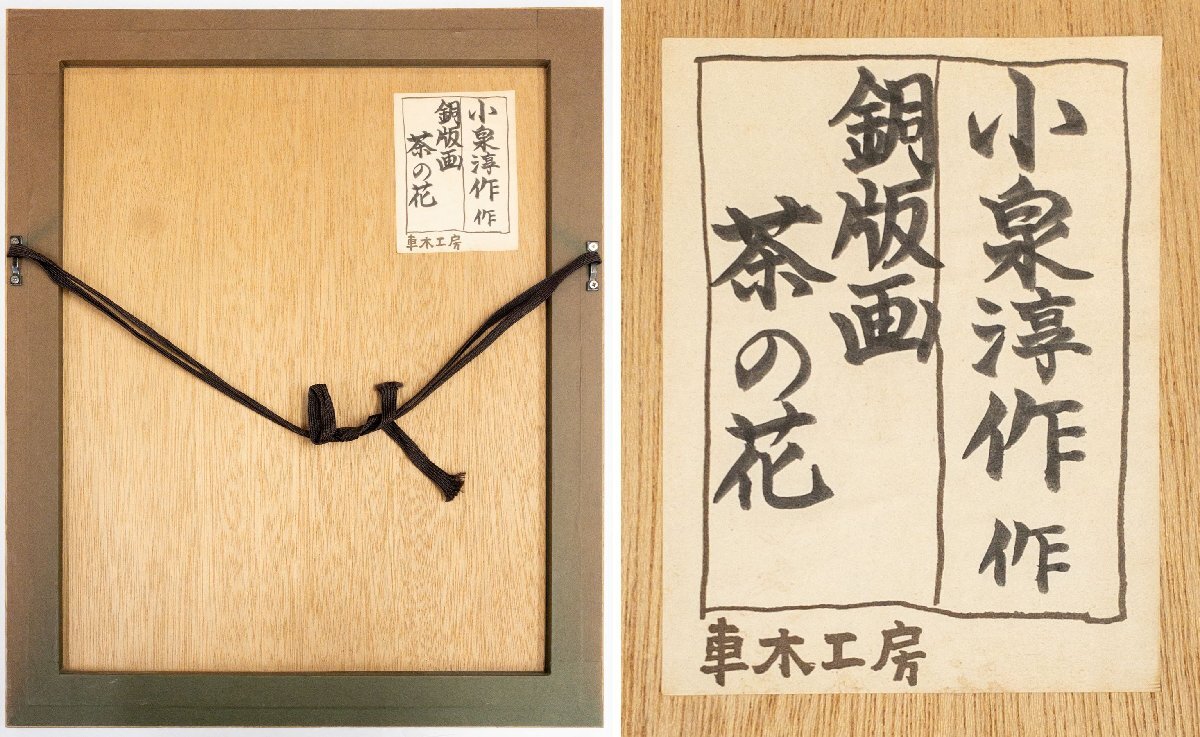 小泉淳作 作
銅版画
茶の花
車木工房
小泉淳作 作
銅版画
茶の花
車木工房